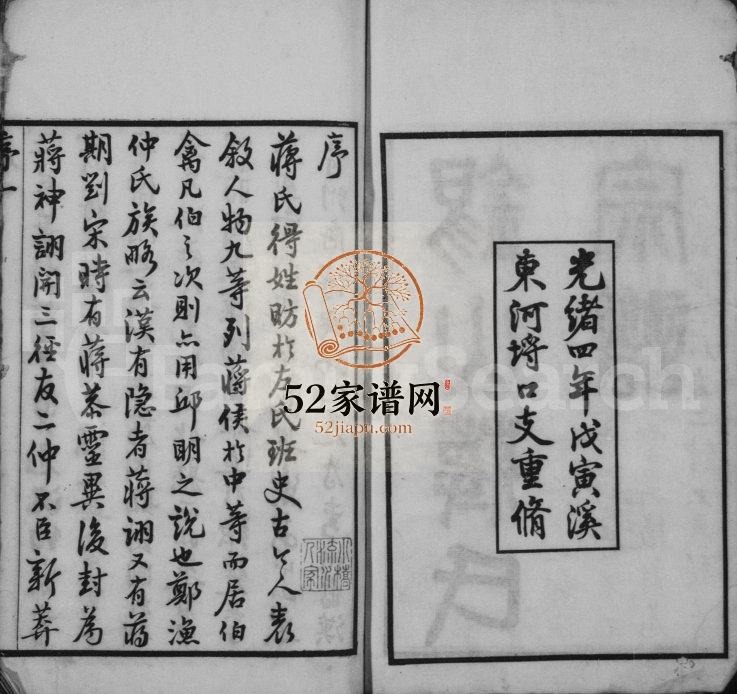 光緒四年戊寅溪
東河埒口支重脩
序
蔣氏得姓昉於左氏班史古今人表
敘人物九等列蔣侯於中等而居伯
禽凡伯之次則亦用邱明之說也鄭漁
仲氏族略云漢有隐者蔣詡又有蔣
期劉宋時有蔣恭靈異後封為
蔣神詡開三徑友二仲不臣新莽
序一
52家谱网
52jiapu.com